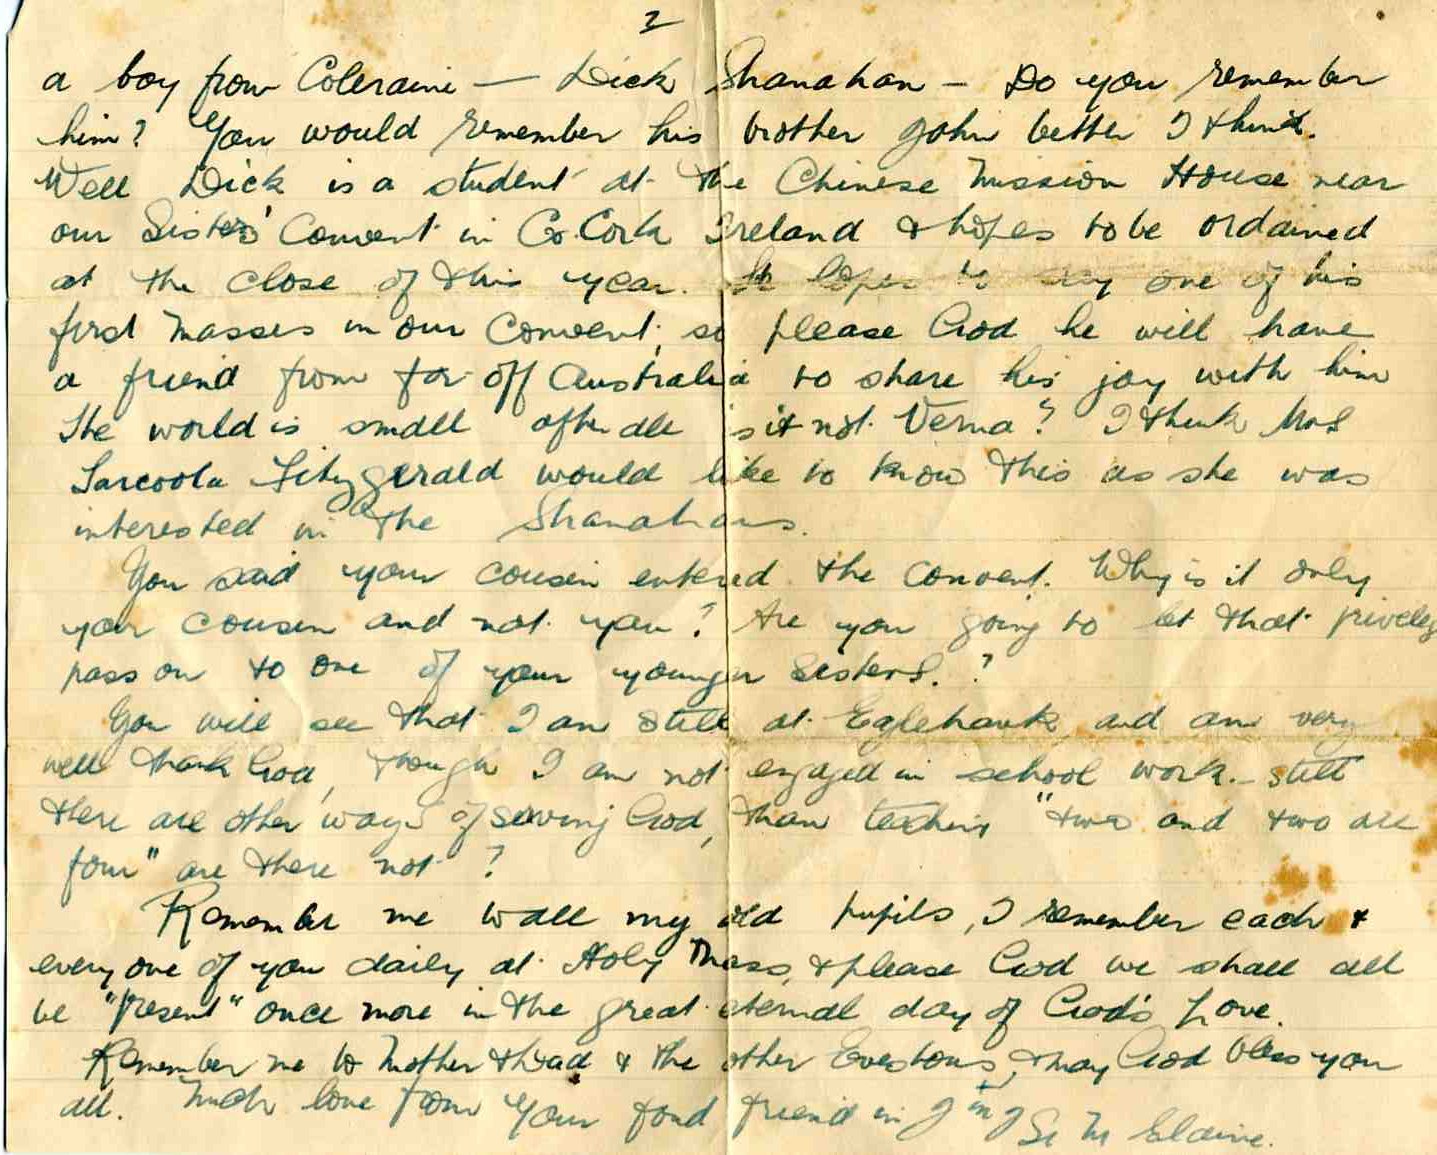 2
a boy from Coleraine — Dick Shanahan – Do you remember
him? You would remember his brother John better I think.
Well Dick is a student at the Chinese Mission House near
our Sisters' Convent in Co. Cork Ireland & hopes to be ordained
at the close of this year. He hopes to say one of his
first Masses in our Convent, so please God he will have
a friend from far off Australia to share his joy with him
The world is small after all is it not Verna? I think Mrs
Larcoola Fitzgerald would like to know this as she was
interested in the Shanahans.
You said your cousin entered the convent. Why is it only
your cousin and not you? Are you going to let that
pass on to one of your younger sisters.?
You will see that I am still at Eaglehawk and am very
well thank God, though I am not engaged in school work. – still
there are other ways of serving God, than teaching "two and two are
four" are there not?
Remember me to all my old pupils, I remember each &
every one of you daily at Holy Mass, & please God we shall all
be "Present" once more in the great eternal day of God's Love.
Remember me to Mother & Dad & the other & may God bless you
all. Much love from Your fond friend in J & J Sr M Elaine.